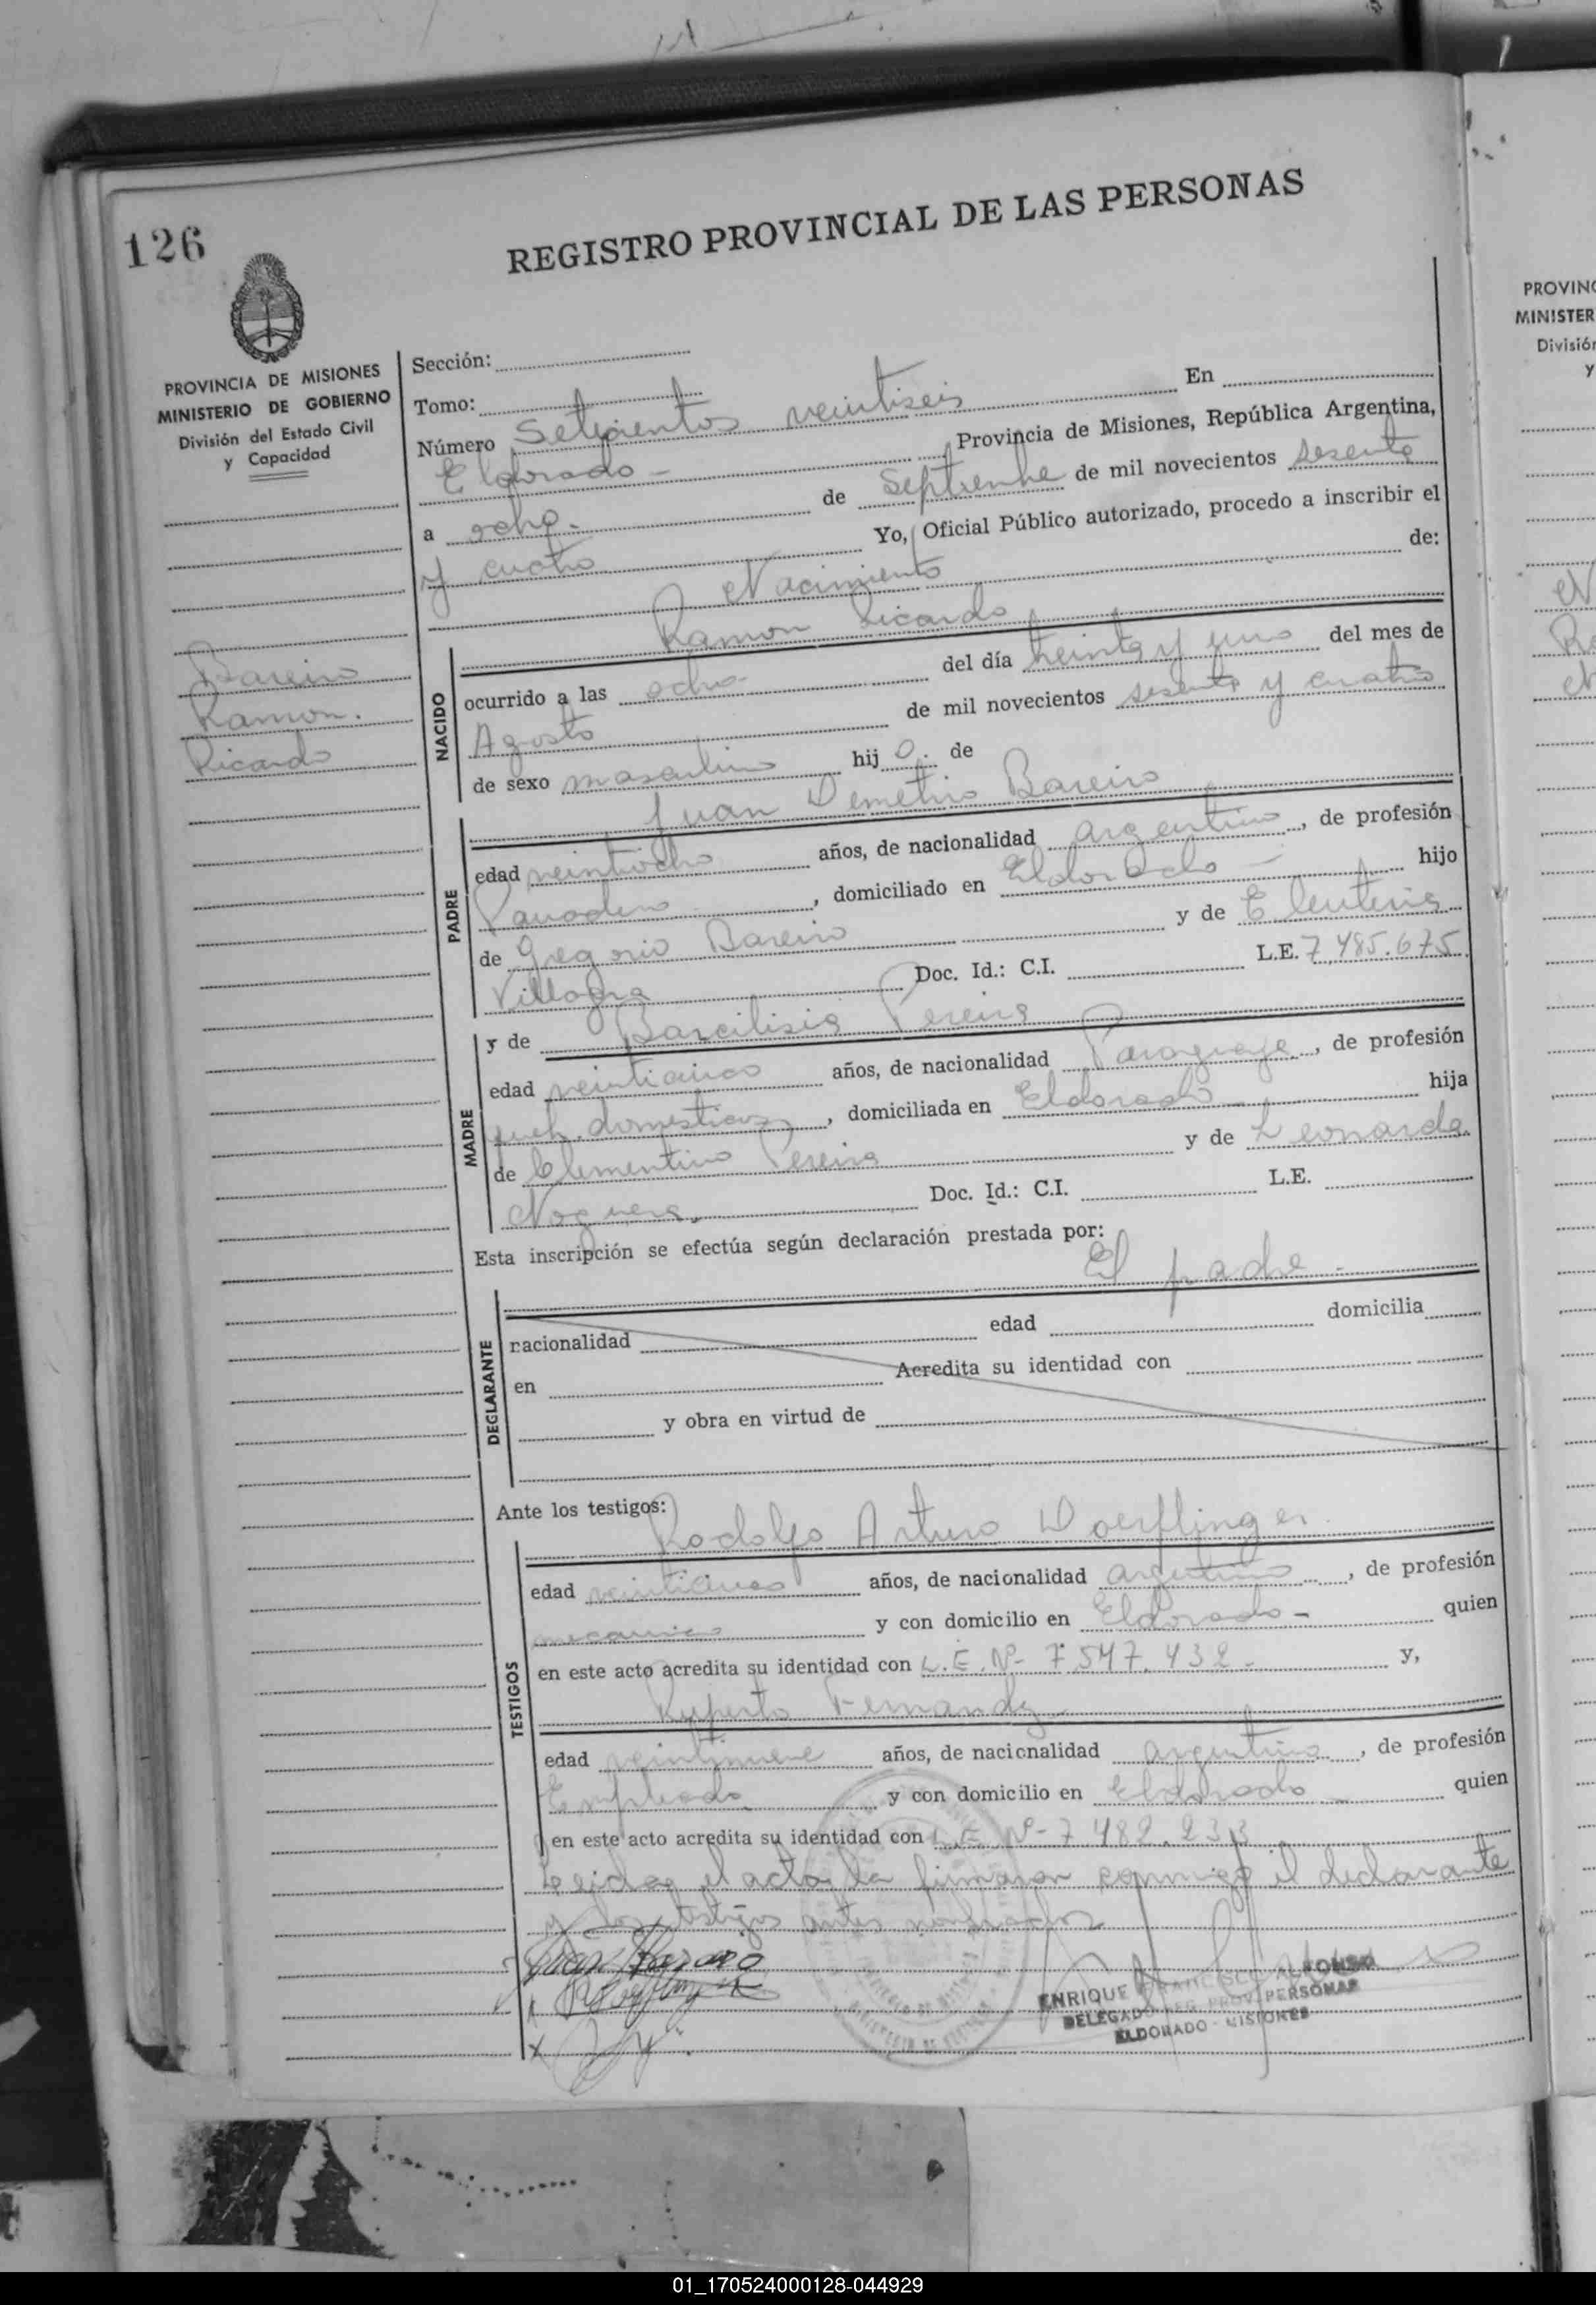 126
REGISTRO PROVINCIAL DE LAS PERSONAS
PROVINCIA DE MISIONES
MINISTERIO DE GOBIERNO
División del Estado Civil
y Capacidad
Bareiro
Ramon.
Ricardo
Sección:
Tomo:
Número Setecientos veintiseis En
Eldorado - , Provincia de Misiones, República Argentina,
a ocho. de Septiembre de mil novecientos sesenta
y cuatro Yo, Oficial Público autorizado, procedo a inscribir el
Nacimiento de:
Ramon Ricardo
NACIDO
ocurrido a las ocho del día treinta y uno del mes de
Agosto de mil novecientos sesenta y cuatro
de sexo masculino hijo. de
Juan Demetrio Bareiro
PADRE
edad veintiocho años, de nacionalidad argentino, de profesión
Panadero, domiciliado en Eldorado - hijo
de Gregorio Bareiro y de Eleuteria
Villagra Doc. Id.: C.I. L.E. 7.485.675
y de Barcilisia Pereira
MADRE
edad veinticinco años, de nacionalidad Paraguaya, de profesión
queh. domesticos, domiciliada en Eldorado - hija
de Clementino Pereira y de Leonarda
Noguera. Doc. Id.: C.I. L.E.
Esta inscripción se efectúa según declaración prestada por:
El padre -
DECLARANTE
nacionalidad edad domicilia
en Acredita su identidad con
y obra en virtud de
Ante los testigos:
Rodolfo Arturo Doerflinger
TESTIGOS
edad veinticinco años, de nacionalidad argentino, de profesión
mecanico y con domicilio en Eldorado - quien
en este acto acredita su identidad con L.E. Nº- 7.547.432 - y,
Ruperto Fernandez
edad veintinueve años, de nacionalidad argentino, de profesión
Empleado y con domicilio en Eldorado - quien
en este acto acredita su identidad con L.E. Nº- 7.482.233
Leida el acta, la firmaron conmigo el declarante
y los testigos antes nombrados
ENRIQUE FRANCISCO ALFONSO
DELEGADO REG. PROV. PERSONAS
ELDORADO - MISIONES
PROVINC
MINISTER
División
y
01_170524000128-044929